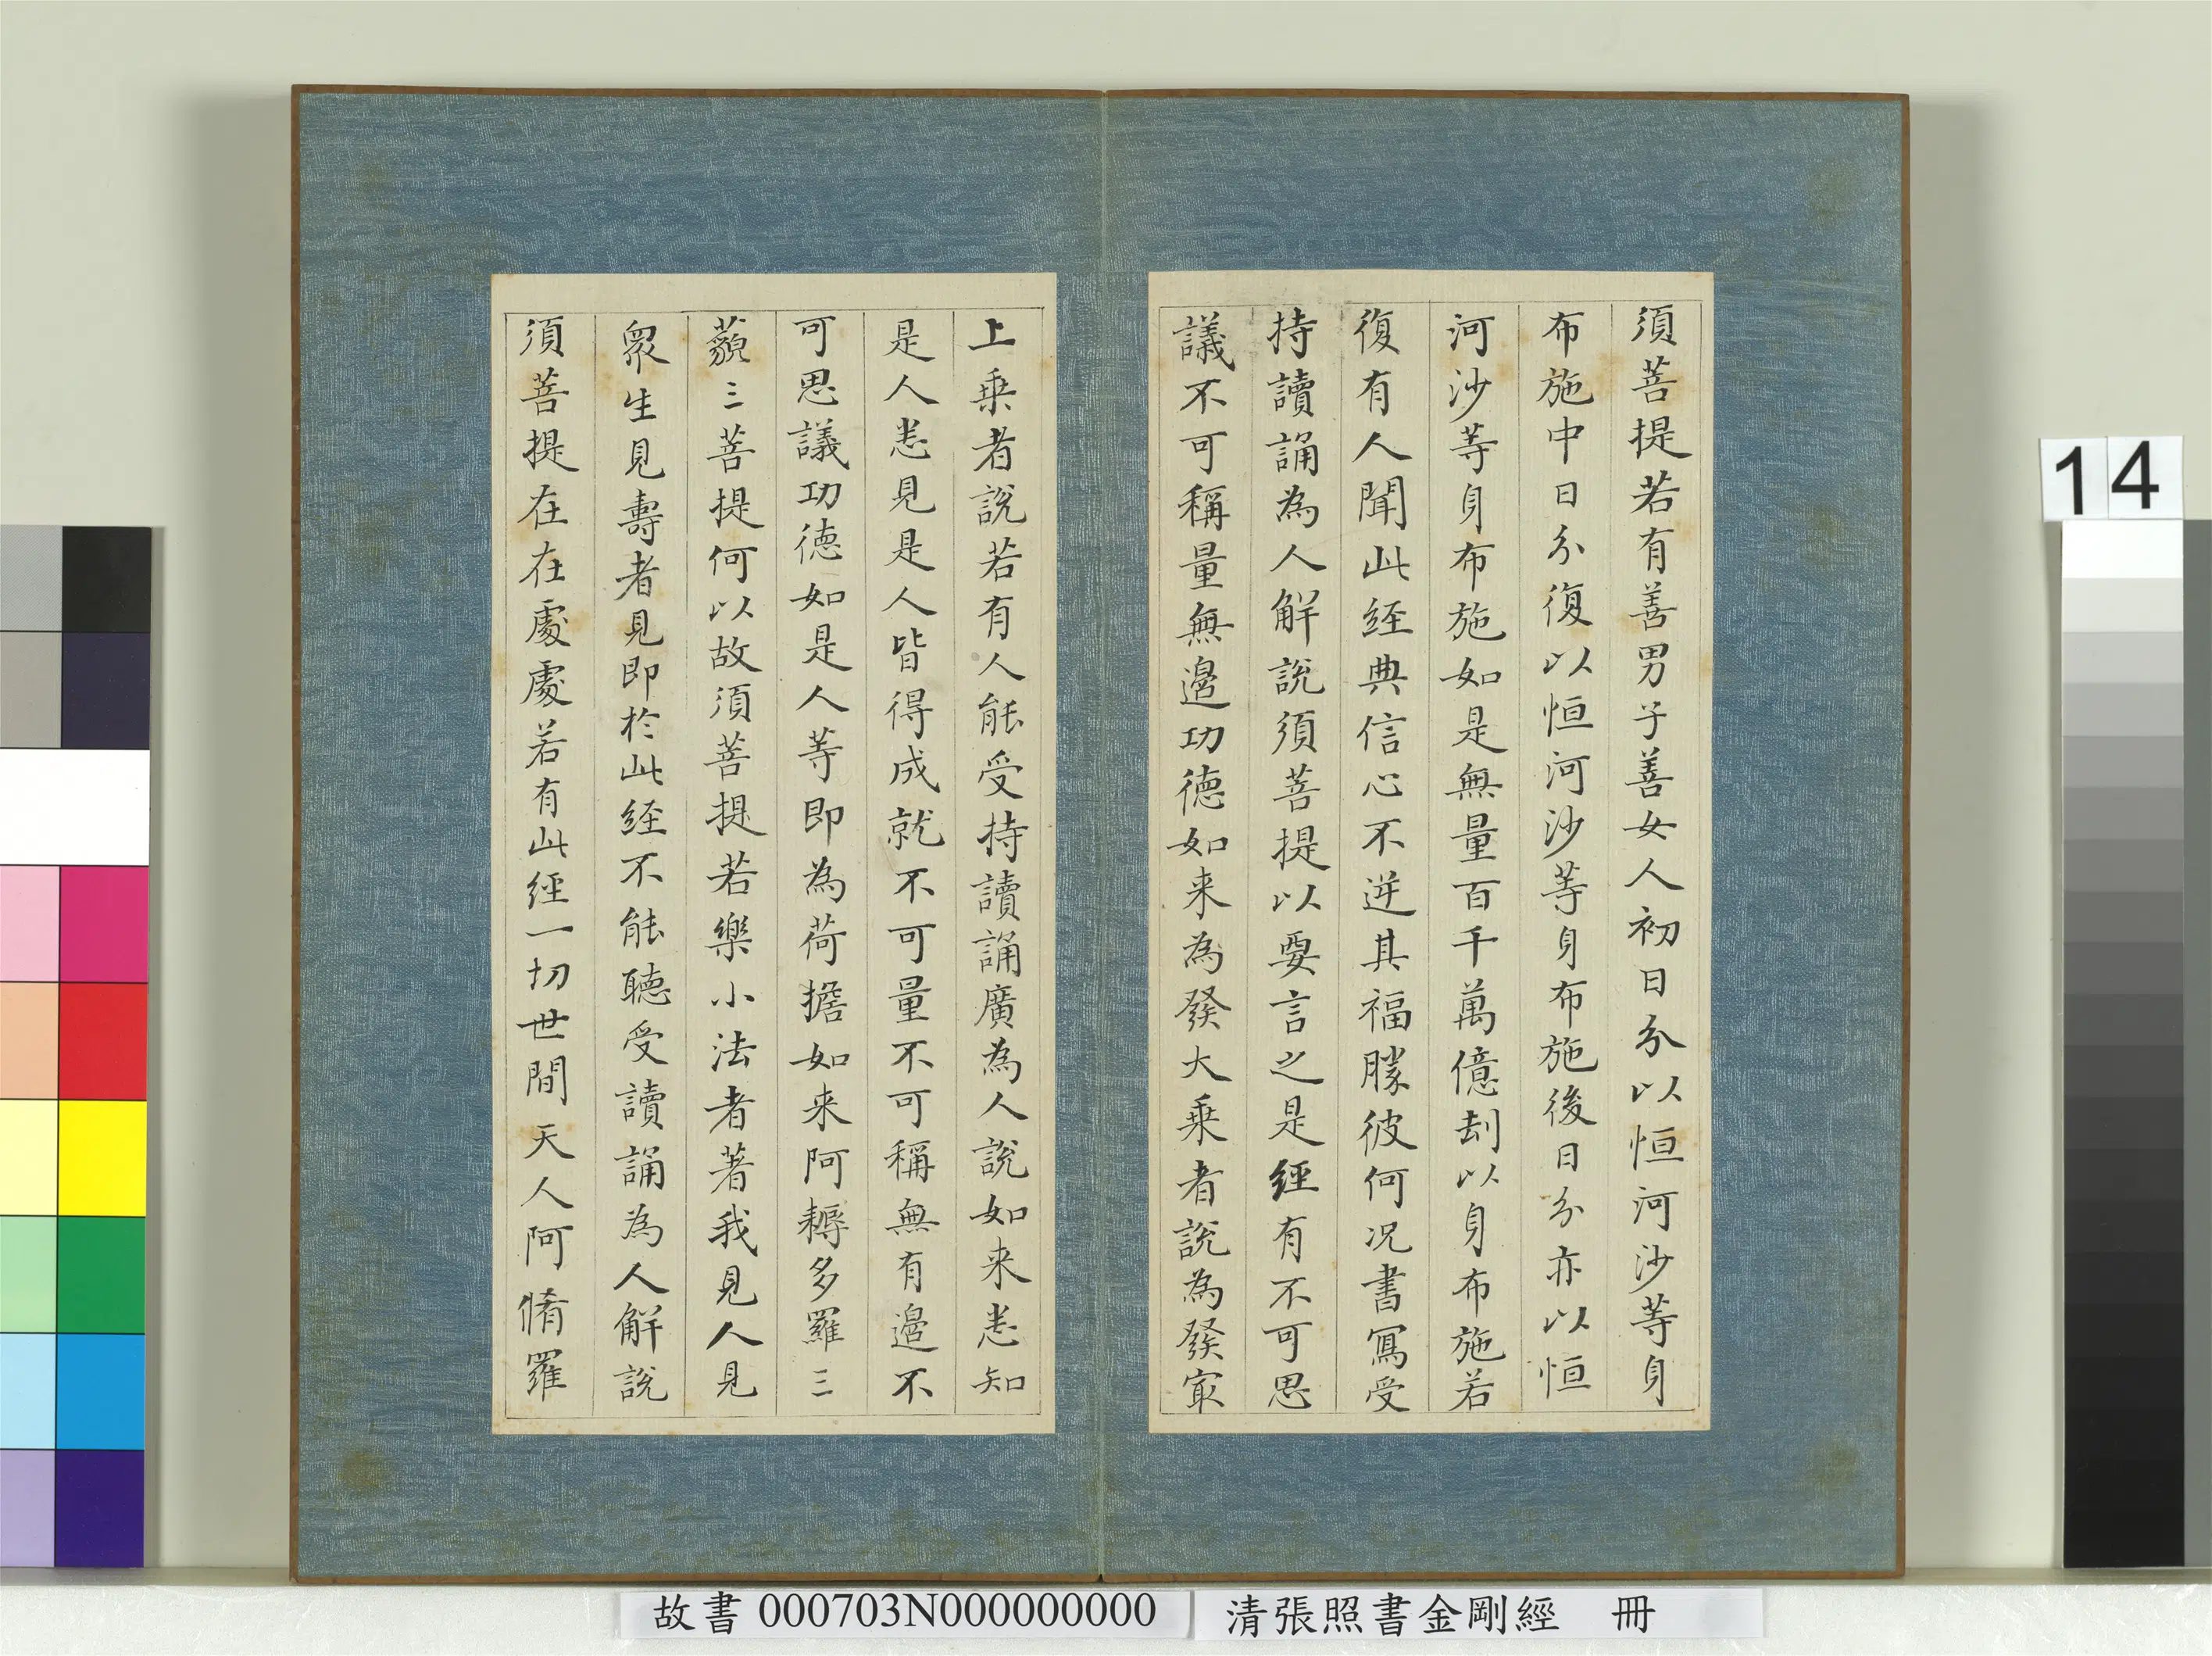 須菩提若有善男子善女人初日分以恒河沙等身
布施中日分復以恒河沙等身布施後日分亦以恒
河沙等身布施如是無量百千萬億刦以身布施若
復有人聞此経典信心不逆其福勝彼何況書寫受
持讀誦為人解說須菩提以要言之是經有不可思
議不可稱量無邊功德如来為發大乗者說為發冣
上乗者說若有人能受持讀誦廣為人說如来悉知
是人悉見是人皆得成就不可量不可稱無有邊不
可思議功德如是人等即為荷擔如来阿耨多羅三
藐三菩提何以故須菩提若樂小法者著我見人見
眾生見壽者見即於此経不能聽受讀誦為人解說
須菩提在在處處若有此經一切世間天人阿脩羅
14
故書 000703N000000000
清張照書金剛經 冊